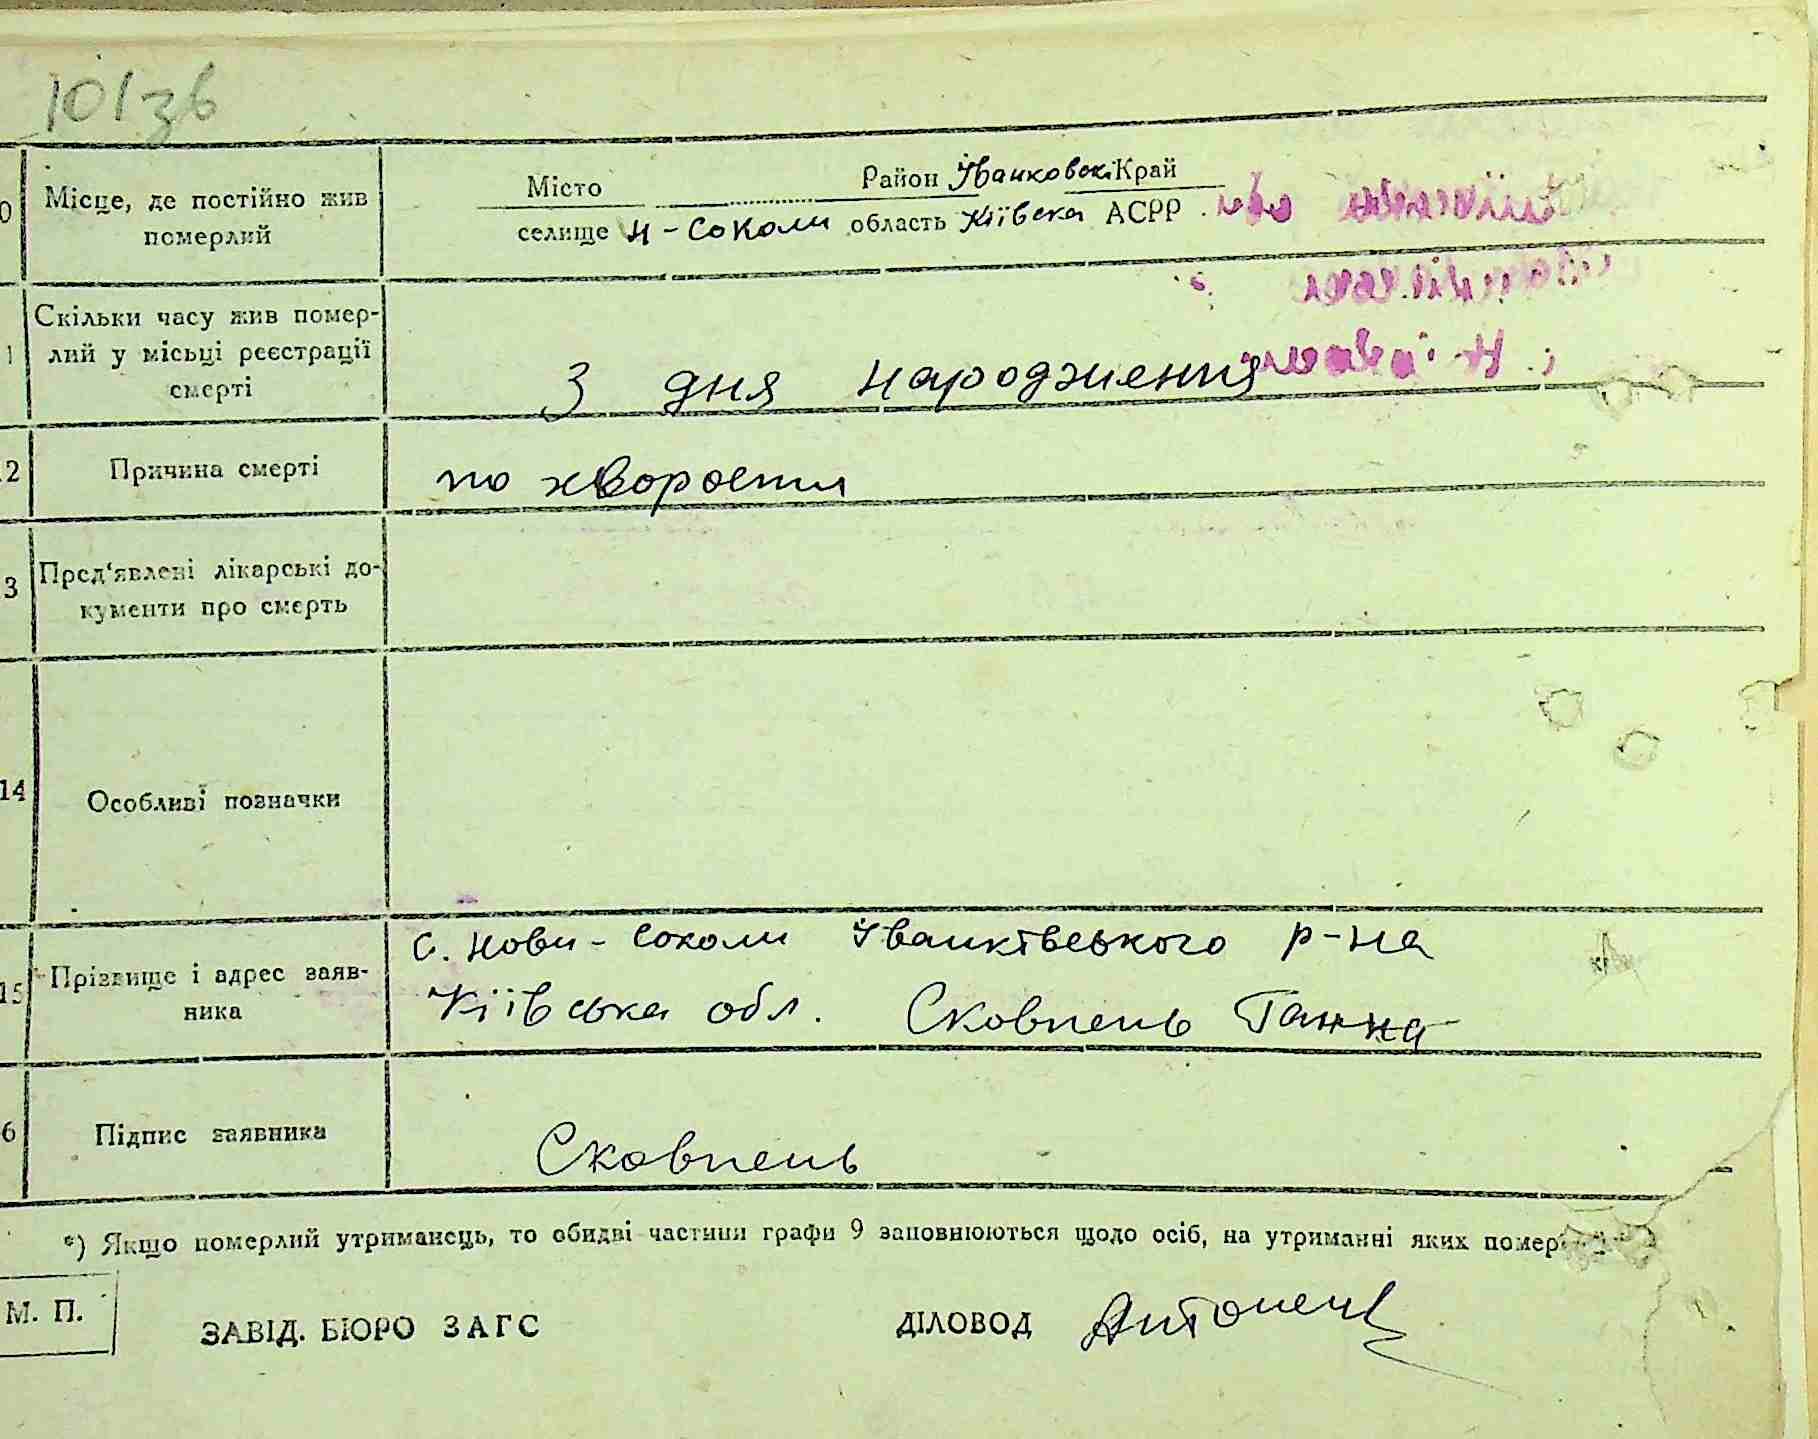 101зв
Місце, де постійно жив
померлий
Місто Район Іванковскі Край
селище Н-Соколи область Київска АСРР
Скільки часу жив помер-
лий у місьці реєстрації
смерті
З дня народження
12 Причина смерті по хворости
3 Пред'явлені лікарські до-
кументи про смерть
14 Особливі позначки
15 Прізвище і адрес заяв-
ника
с. Нови-Соколи Іванківського р-на
Київська обл. Сковпень Ганна
6 Підпис заявника Сковпень
*) Якщо померлий утриманець, то обидві частини графи 9 заповнюються щодо осіб, на утриманні яких помер
М. П.
ЗАВІД. БЮРО ЗАГС ДІЛОВОД Антонець